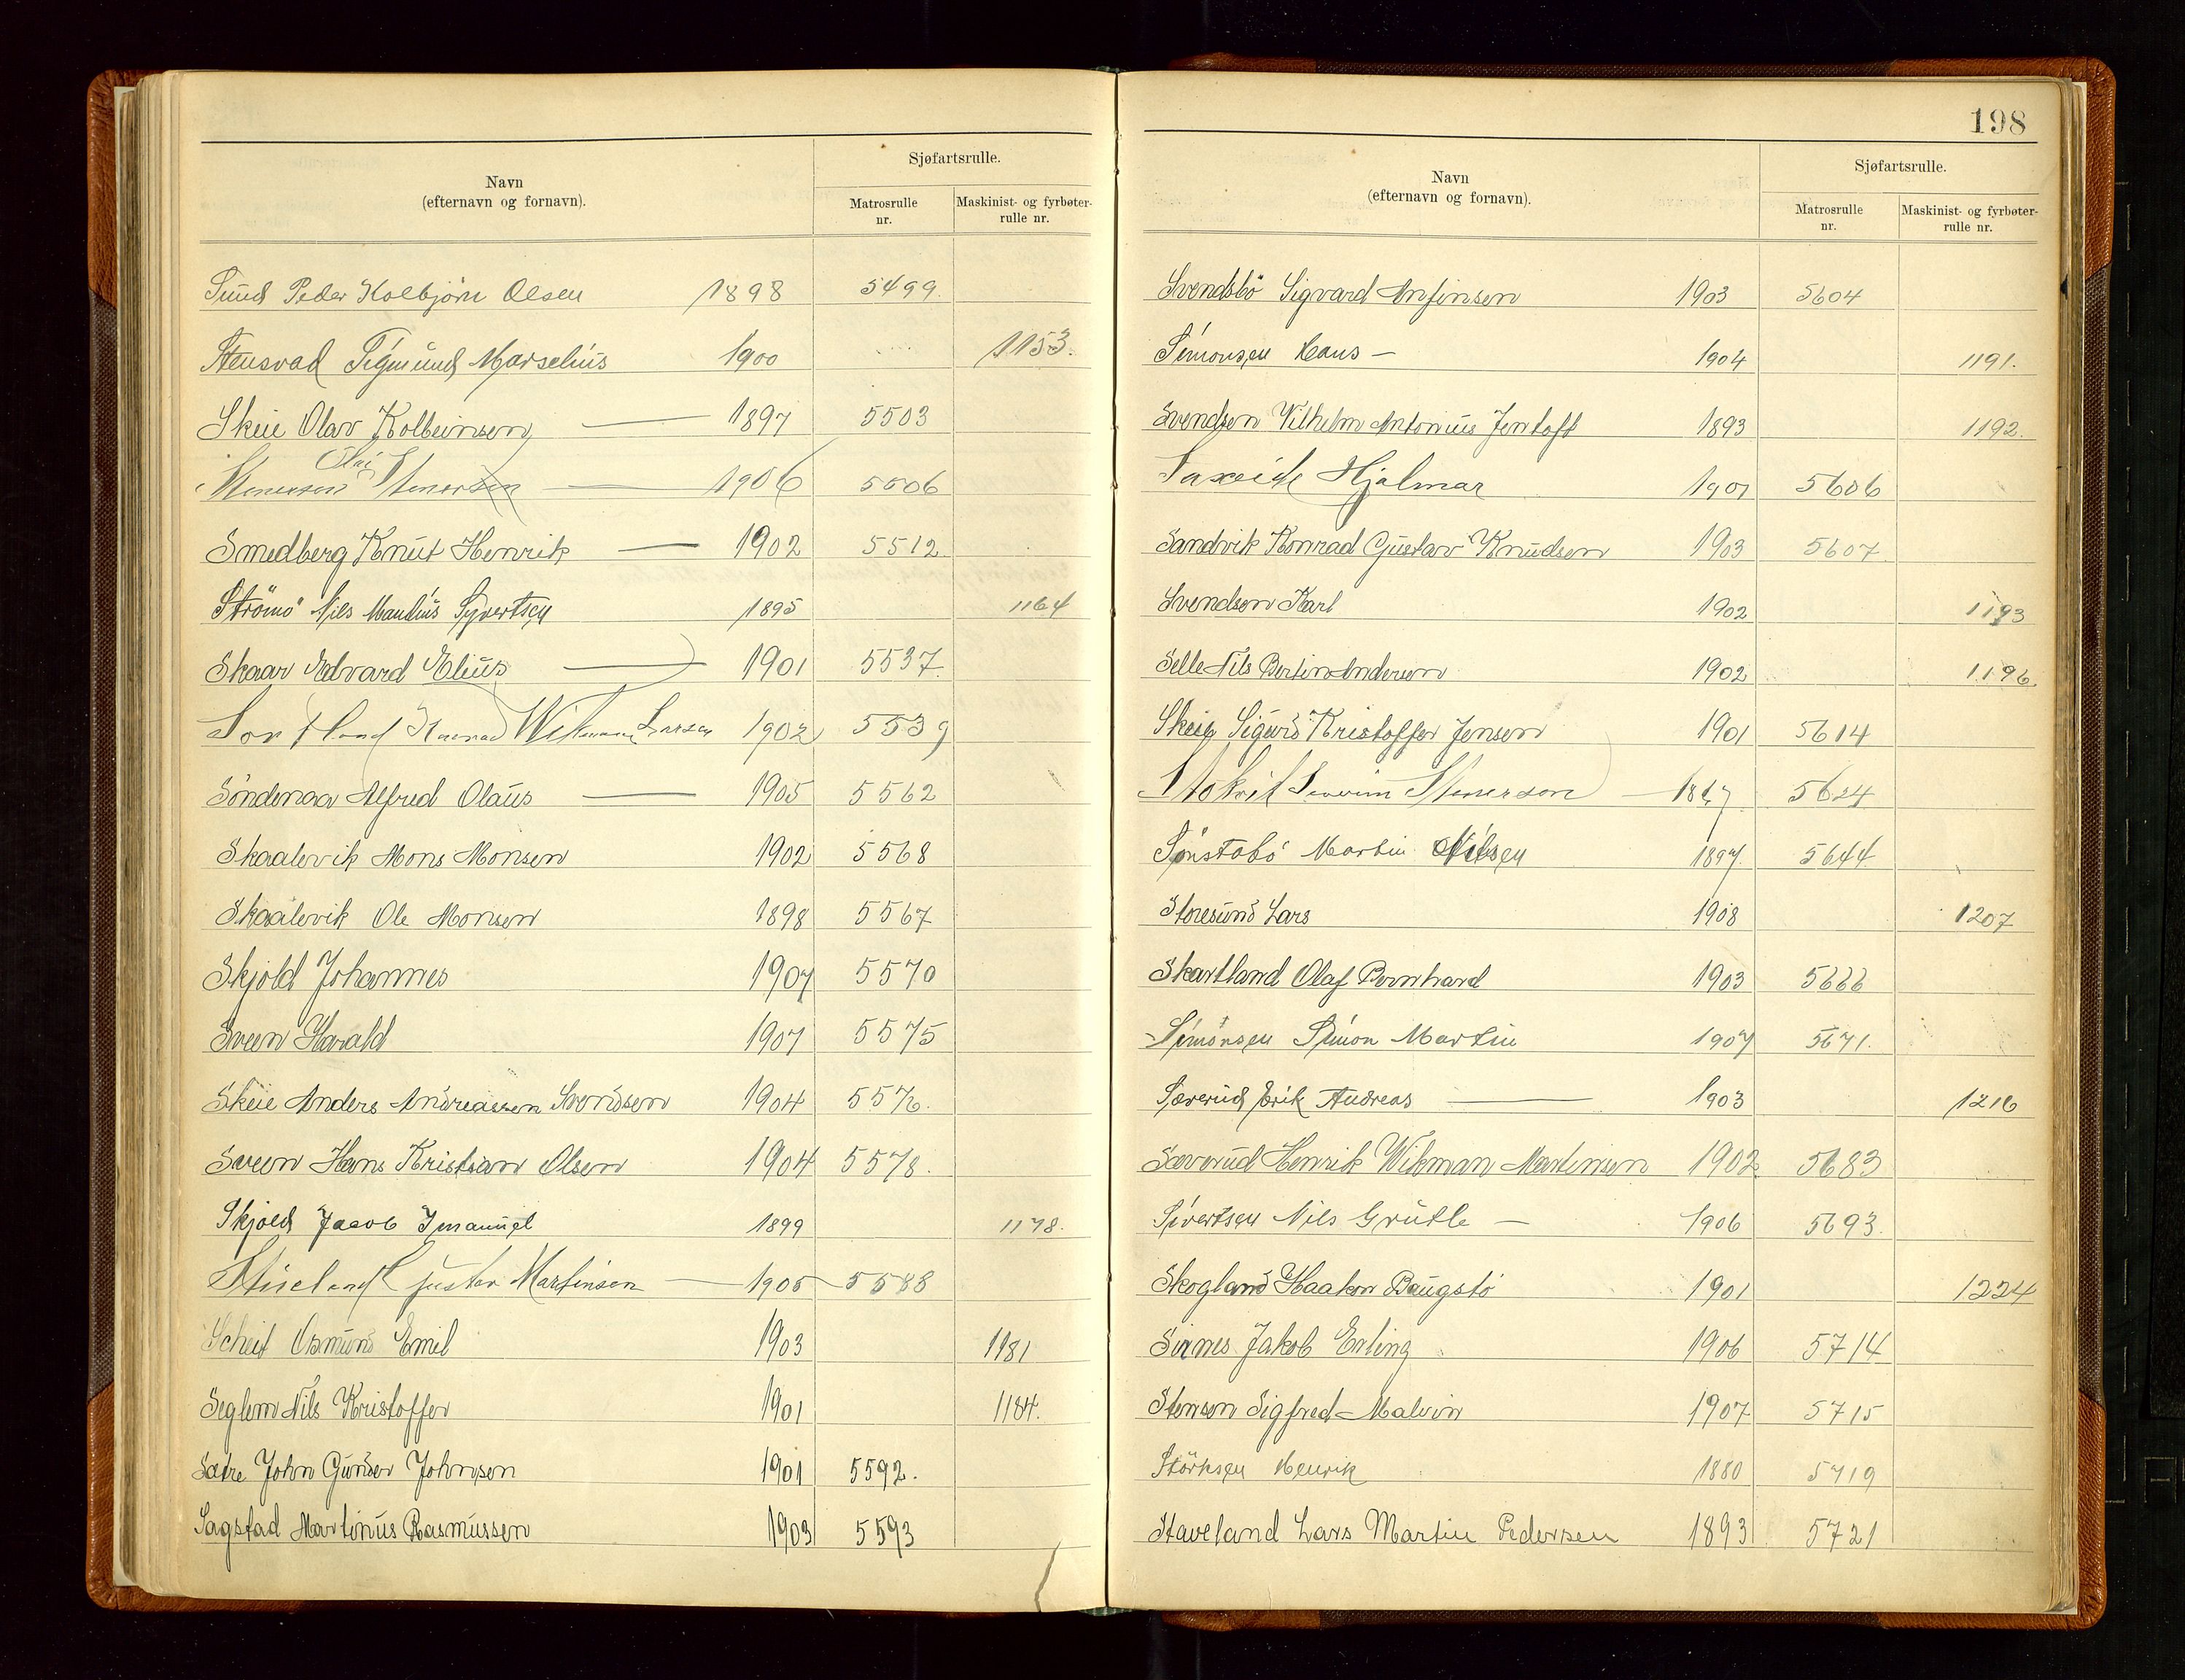 Navn
(efternavn og fornavn).
Sjøfartsrulle.
Matrosrulle
nr.
Maskinist- og fyrbøter-
rulle nr.
Sund Peder Kolbjörn Olsen 1898 5499.
Stensvad Sigmund Marselius 1900 1153.
Skeie Olav Kolbeinsen — 1897 5503
Olai
Stenersen — 1906 5506
Smedberg Knut Henrik — 1902 5512
Strömö Nils Mantius Syvertsen 1895 1164
Skaar Edvard Elius — 1901 5537
Larsen 1902 5539
Söndenaa Alfred Olaus — 1905 5562
Skaalevik Mons Monsen 1902 5568
Skaalevik Ole Monsen 1898 5567
Skjold Johannes 1907 5570
Sveen Harald 1907 5575
Skeie Anders Andreassen Svendsen 1904 5576.
Sveen Hans Kristian Olsen 1904 5578.
Skjold Jacob Imanuel 1899 1178.
Gustav Martinsen — 1905 5588
Scheit Osmund Emil 1903 1181
Seglem Nils Kristoffer 1901 1184.
Sætre John Gunder Johnsen 1901 5592.
Sagstad Martinus Rasmussen 1903 5593
198
Navn
(efternavn og fornavn).
Sjøfartsrulle.
Matrosrulle
nr.
Maskinist- og fyrbøter-
rulle nr.
Svendsbö Sigvard Anfinsen 1903 5604
Simonsen Hans — 1904 1191.
Svendsen Vilhelm Antonius Jentoft 1893 1192.
Saxeide Hjalmar 1901 5606
Sandvik Konrad Gustav Knudsen 1903 5607
Svendsen Karl 1902 1193
Selle Nils Bertin Andersen 1902 1196.
Skeie Sigurd Kristoffer Jensen 1901 5614
Severin Stenerson 5624
Sönstabö Martin Nilsen 1897. 5644
Storesund Lars 1908 1207
Skartland Olaf Bernhard 1903 5666
Simonsen Simon Martin 1907 5671.
Sæverud Erik Andreas — 1903 1216
Sæverud Henrik Wikman Martinsen 1902 5683
Sivertsen Nils Grutle — 1906 5693.
Skogland Haakon Baugstö 1901 1224
Sirnes Jakob Erling 1906 5714
Stensen Sigfred Malvin 1907 5715
Störksen Henrik 1880 5719
Staveland Lars Martin Pedersen 1893 5721